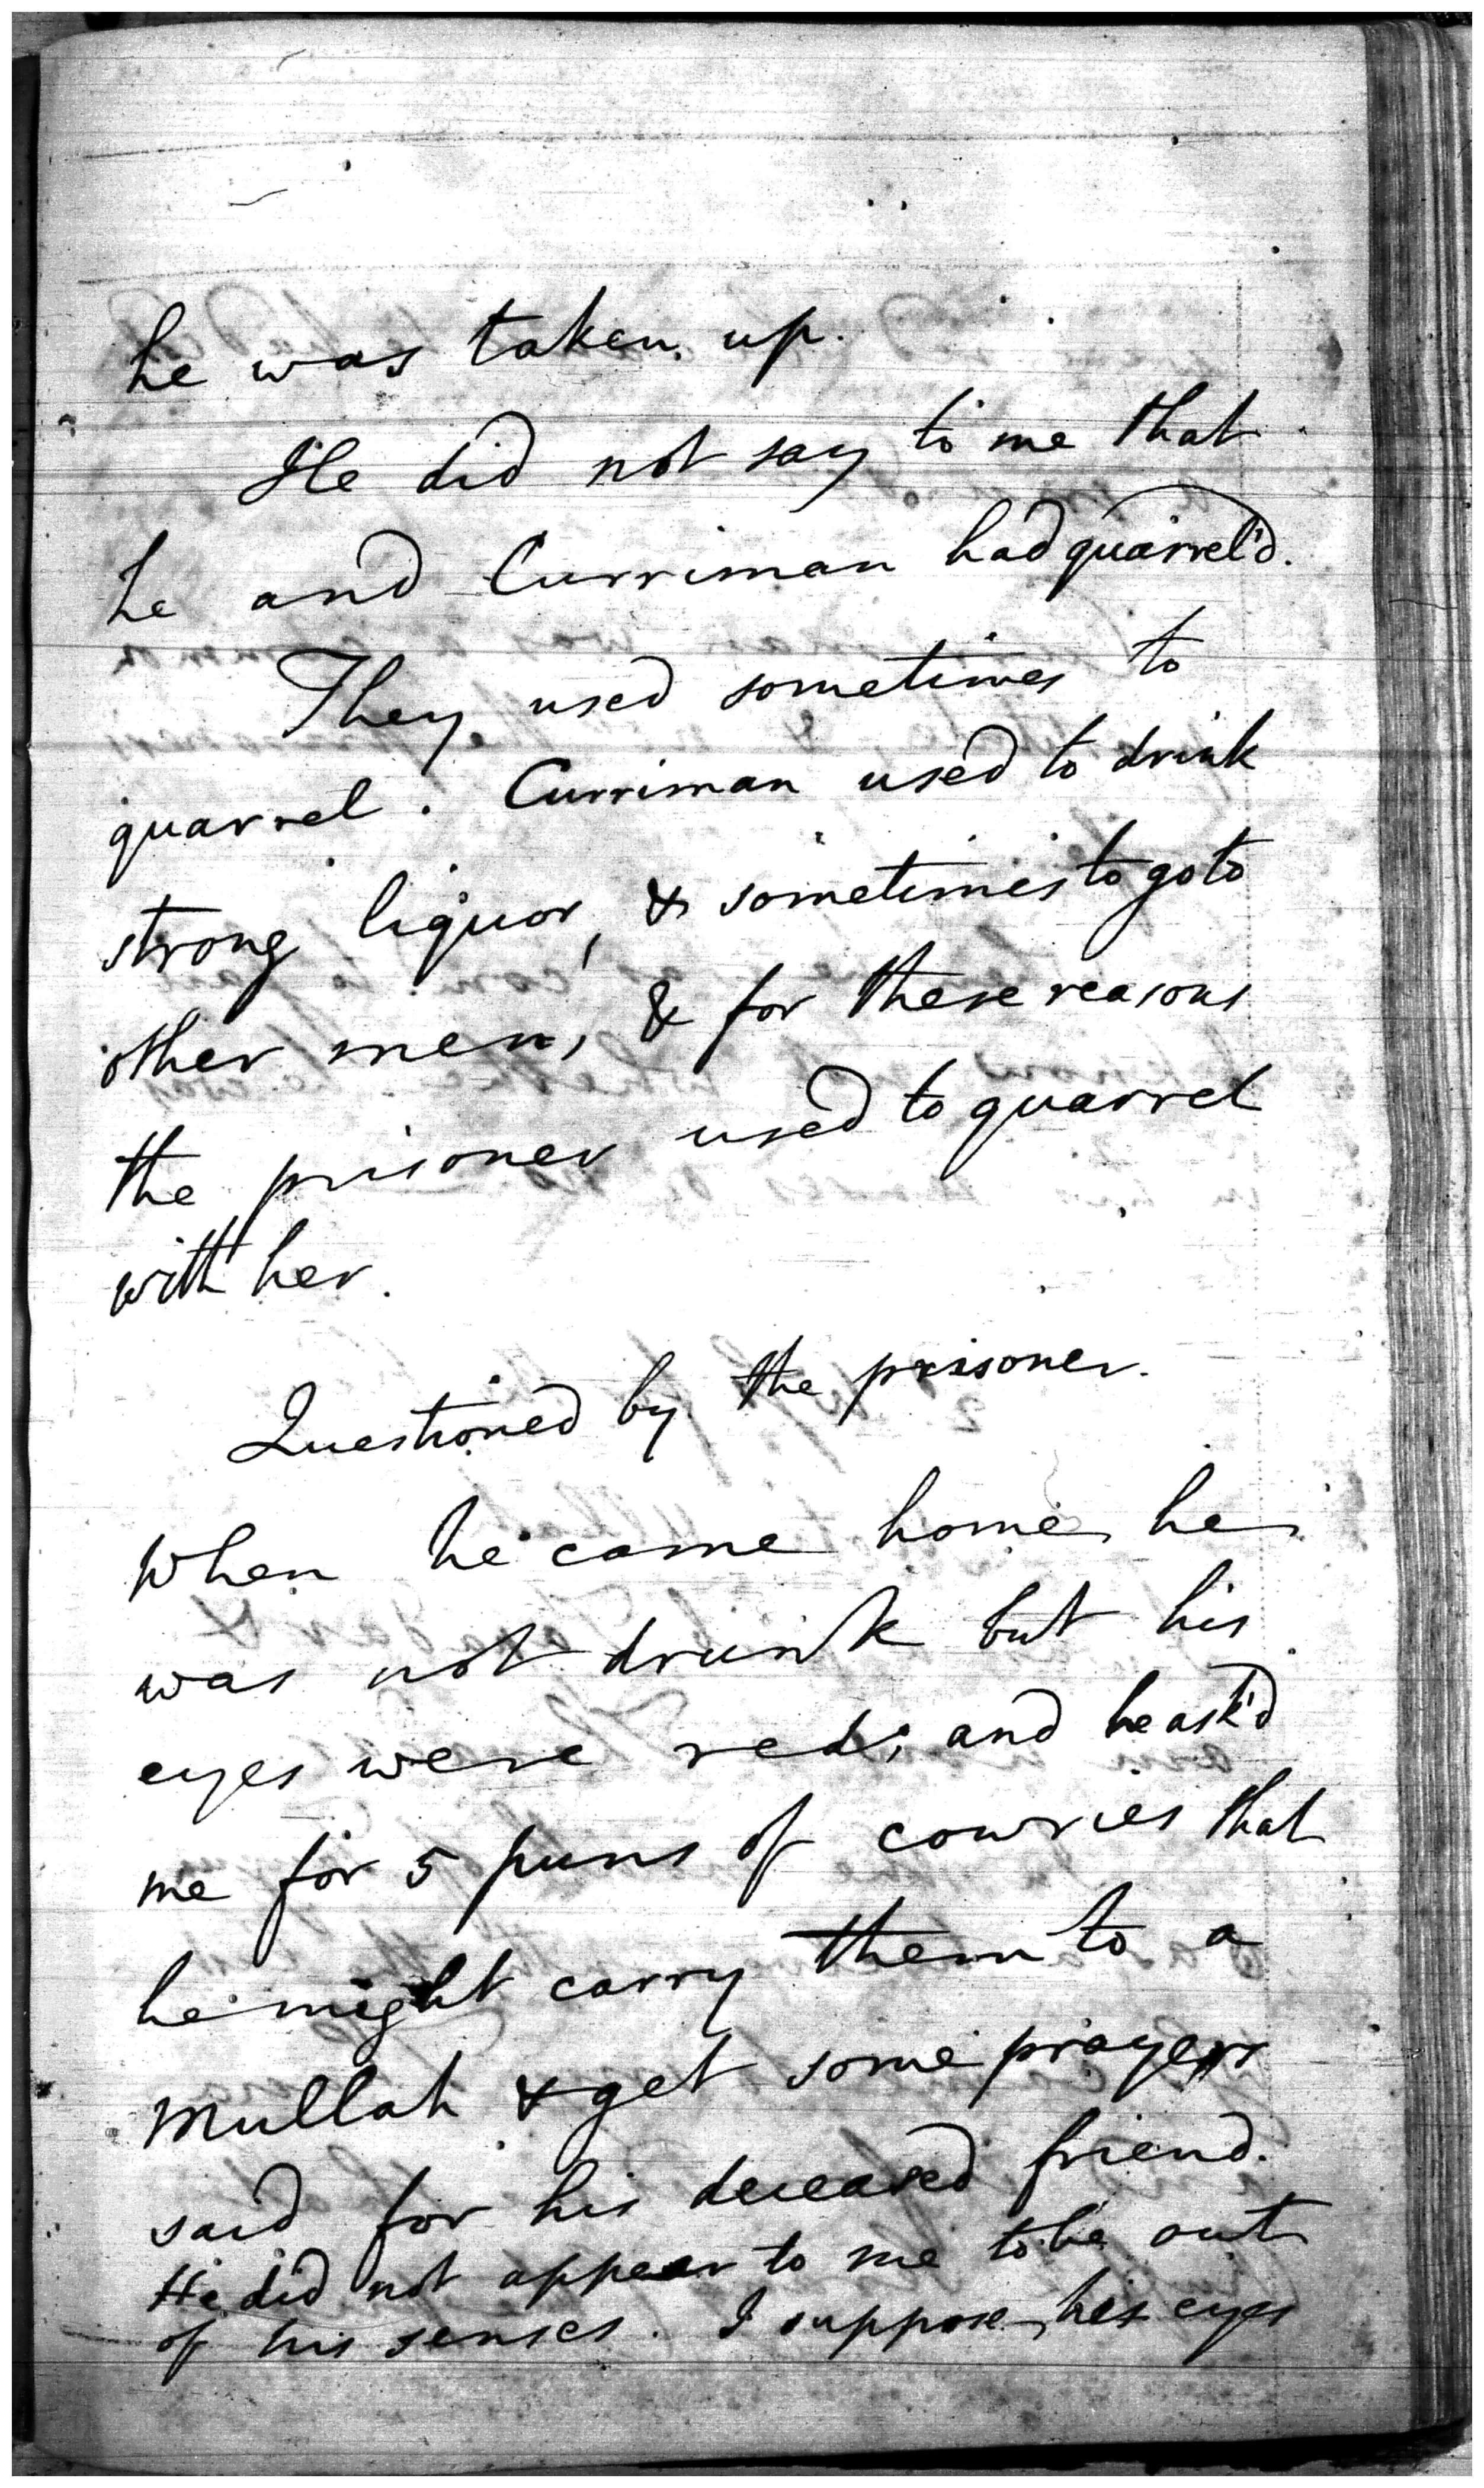 he was taken up.
He did not say to me that
he and Curriman had quarrel'd.
They used sometimes to
quarrel. Curriman used to drink
strong liquor, & sometimes to go to
other men, & for these reasons
the prisoner used to quarrel
with her.
Questioned by the prisoner.
When he came home he
was not drunk but his
eyes were red; and he ask'd
me for 5 puns of cowries that
he might carry them to a
Mullah & get some prayers
said for his deceased friend.
He did not appear to me to be out
of his senses. I suppose his eyes